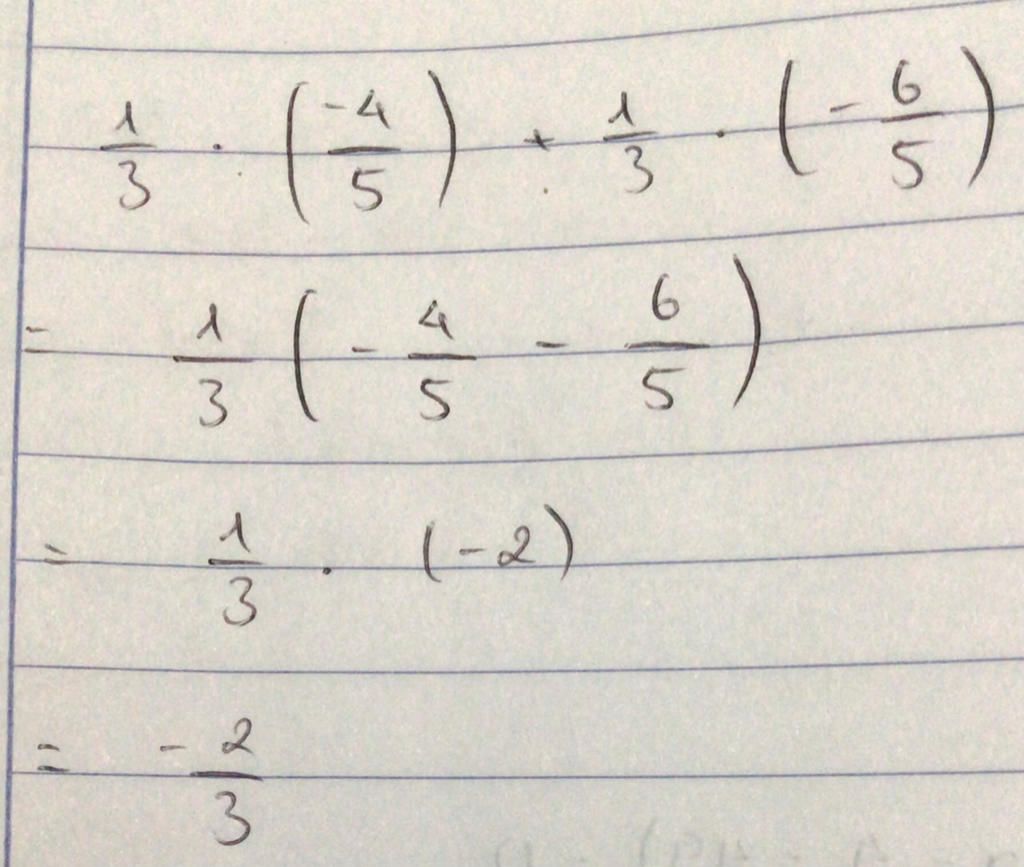 1/3 · (-4/5) + 1/3 · (-6/5)
= 1/3 (-4/5 - 6/5)
= 1/3 · (-2)
= -2/3